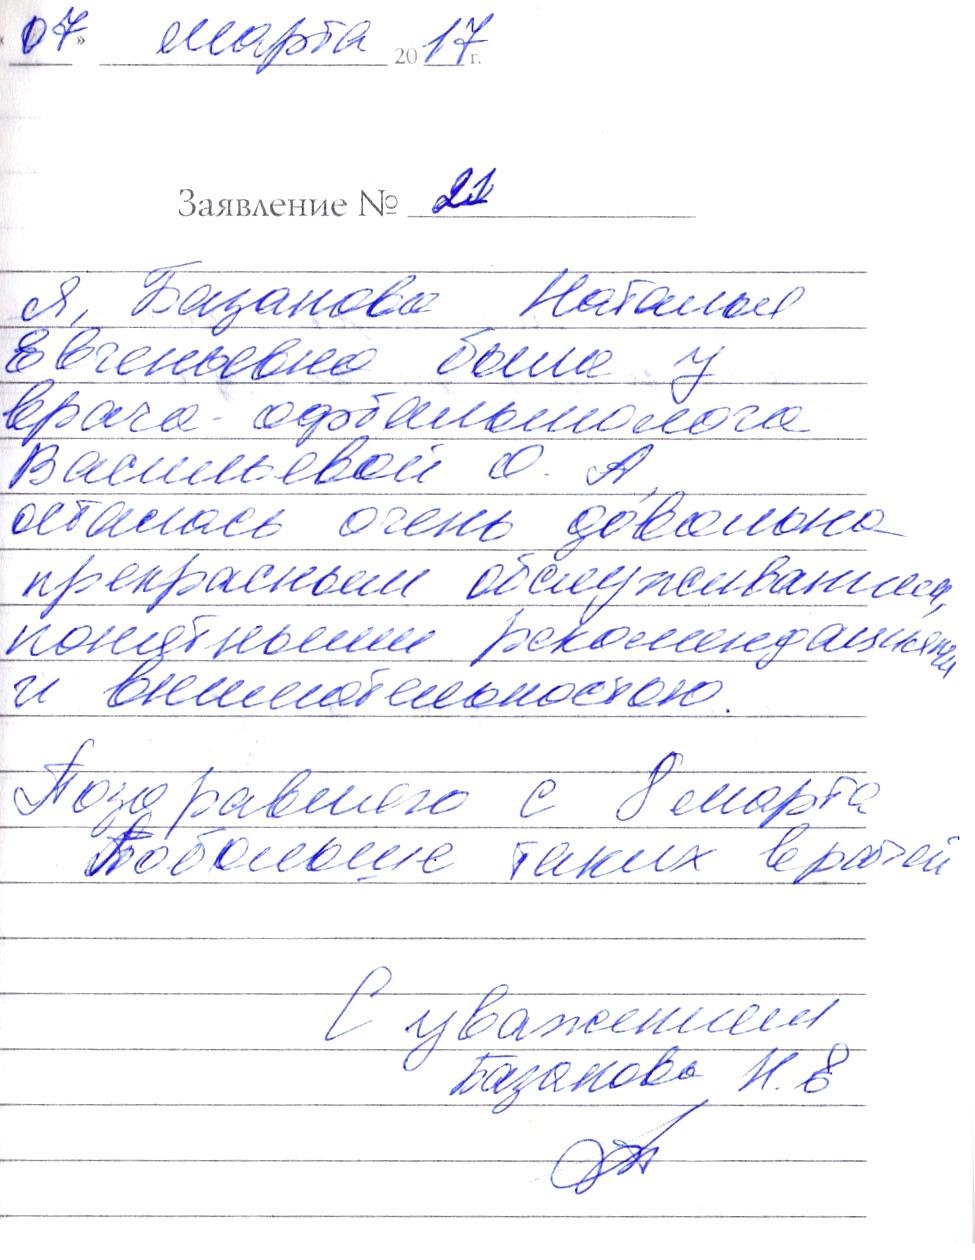 «07» марта 2017 г.
Заявление № 21
Я, Базанова Наталья
Евгеньевна была у
врача-офтальмолога
Васильевой О. А,
осталась очень довольна
прекрасным обслуживанием,
понятными рекомендациями
и внимательностью.
Поздравляю с 8 марта
Побольше таких врачей
С уважением
Базанова Н. Е